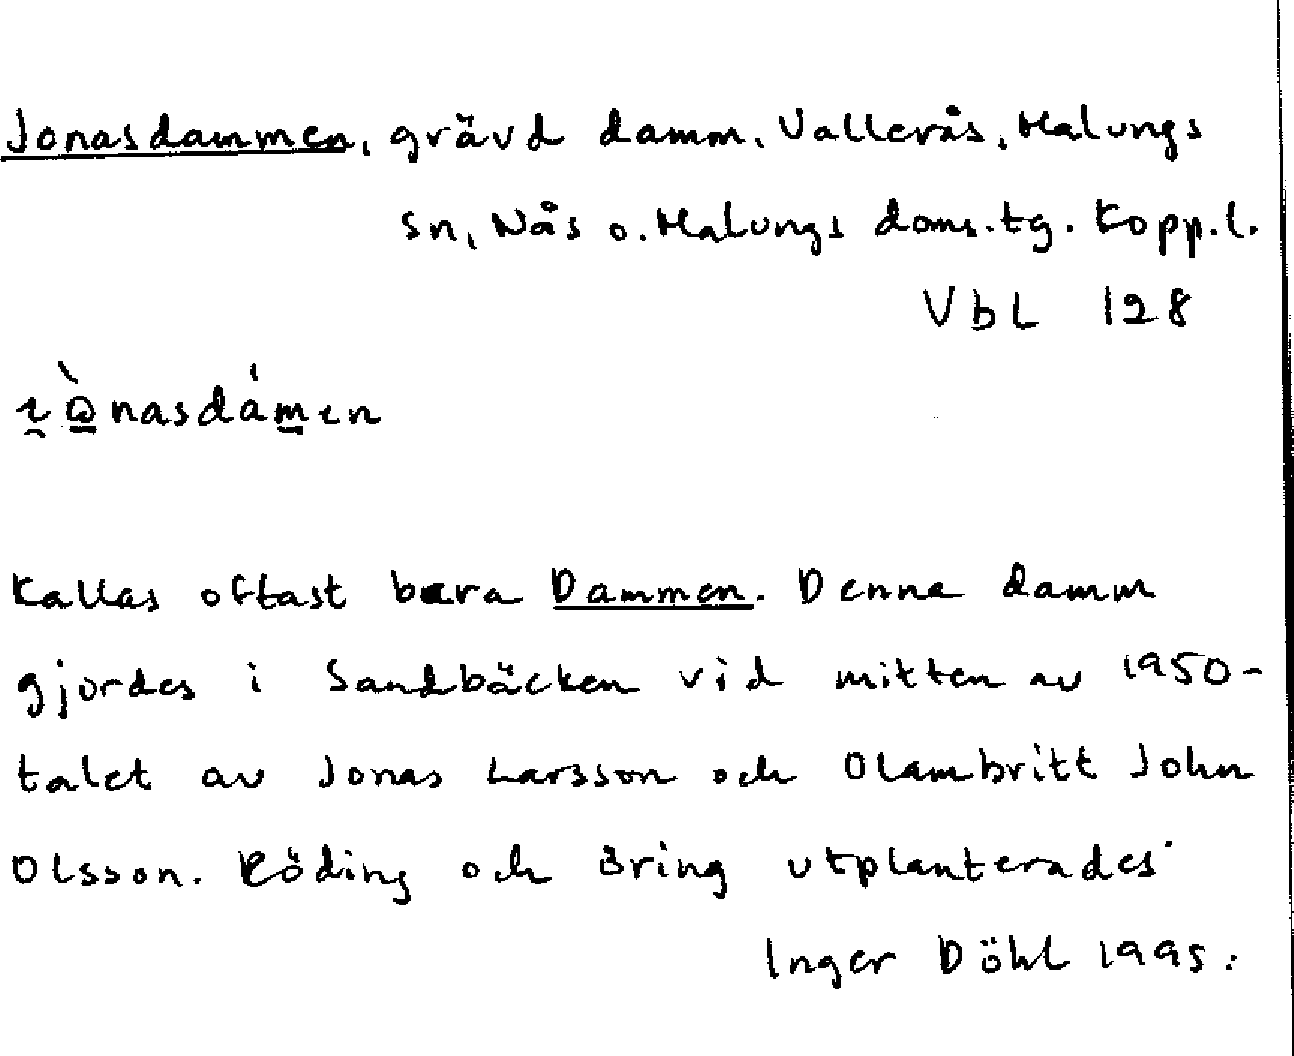 Jonasdammen, grävd damm, Vallerås, Malungs
sn, Nås o. Malungs doms.tg. Kopp.l.
VbL 128
Kallas oftast bara Dammen. Denna damm
gjordes i Sandbäcken vid mitten av 1950-
talet av Jonas Larsson och Olambritt John
Olsson. Röding och öring utplanterades
Inger Döhl 1995.